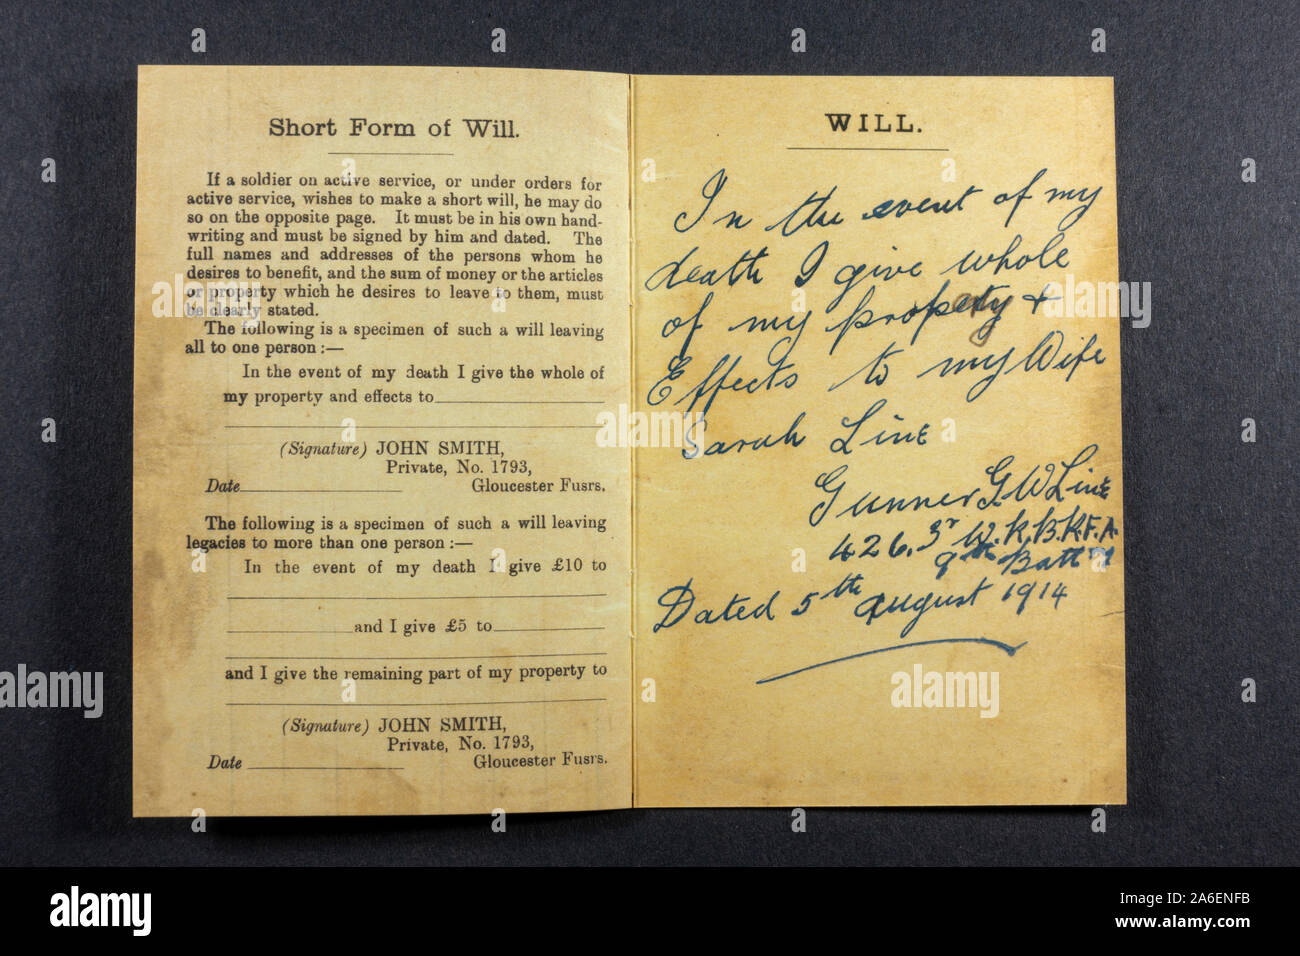 Short Form of Will.
If a soldier on active service, or under orders for
active service, wishes to make a short will, he may do
so on the opposite page. It must be in his own hand-
writing and must be signed by him and dated. The
full names and addresses of the persons whom he
desires to benefit, and the sum of money or the articles
or property which he desires to leave to them, must
be clearly stated.
The following is a specimen of such a will leaving
all to one person :—
In the event of my death I give the whole of
my property and effects to
(Signature) JOHN SMITH,
Private, No. 1793,
Date Gloucester Fusrs.
The following is a specimen of such a will leaving
legacies to more than one person :—
In the event of my death I give £10 to
and I give £5 to
and I give the remaining part of my property to
(Signature) JOHN SMITH,
Private, No. 1793,
Date Gloucester Fusrs.
WILL.
In the event of my
death I give whole
of my property +
Effects to my Wife
Sarah Line
Gunner G W Line
426. 3r W.R.B.R.F.A.
9th Batt
Dated 5th august 1914
alamy
Image ID: 2A6ENFB
www.alamy.com